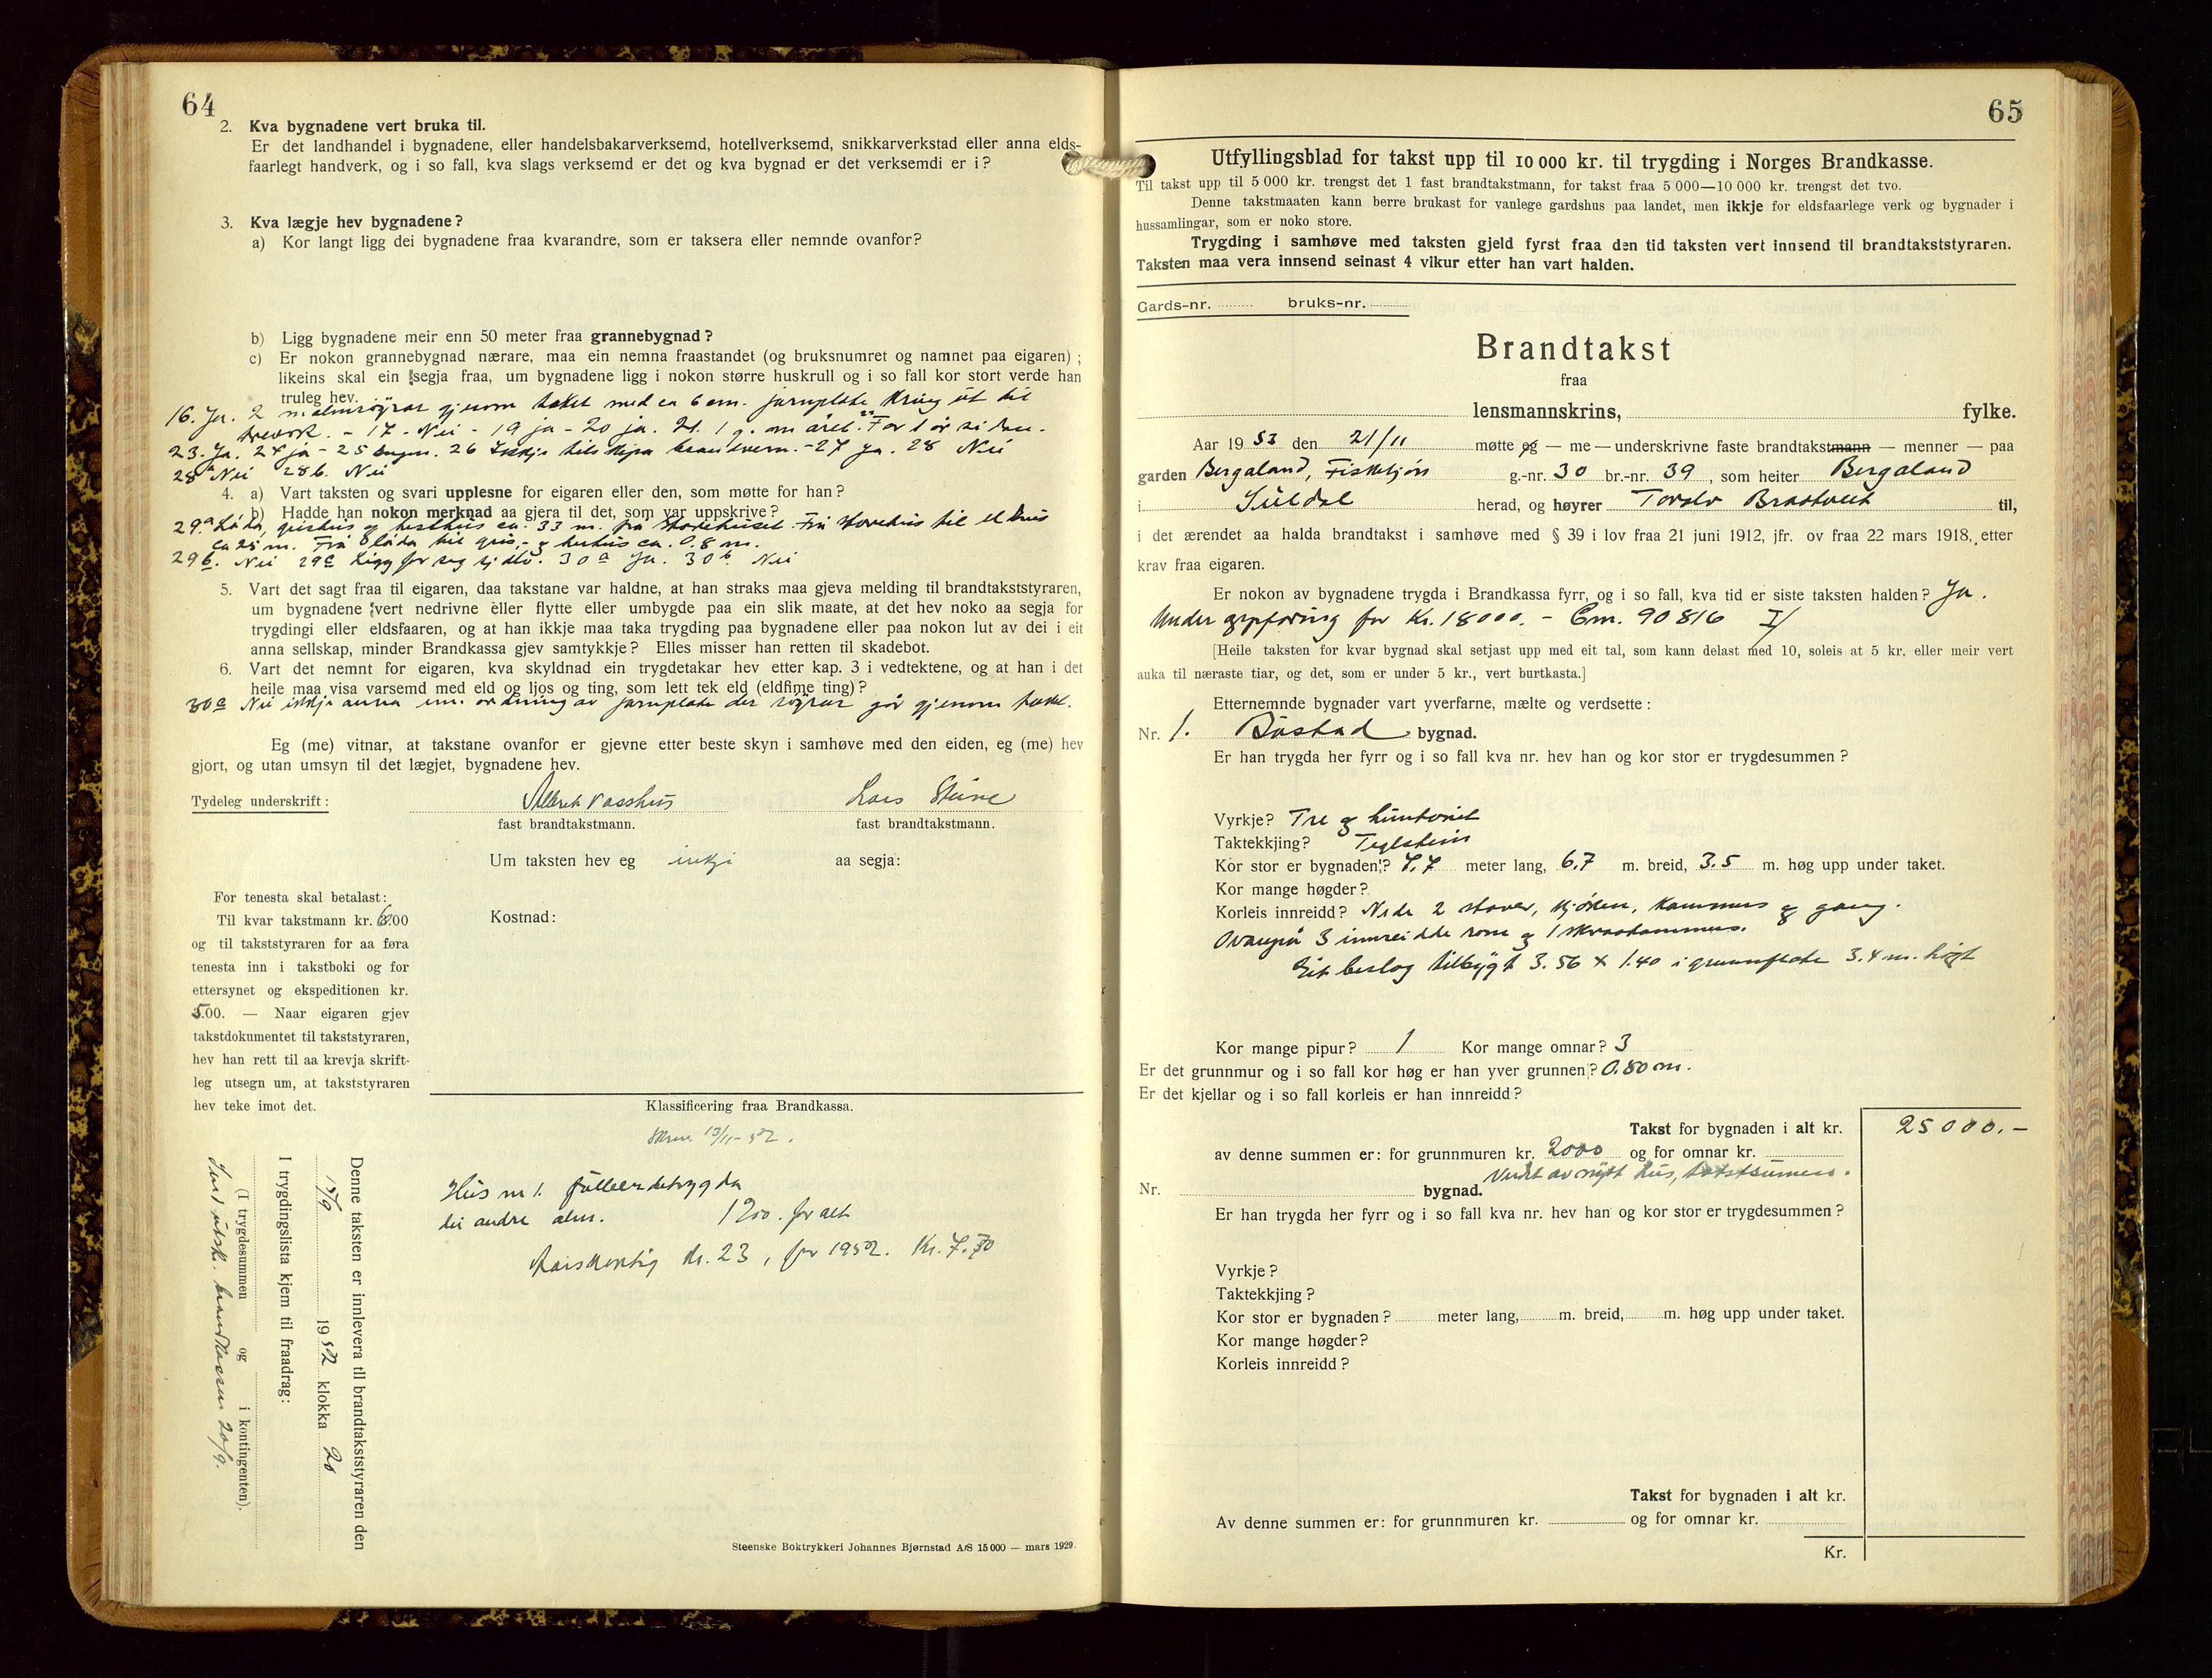 64
2. Kva bygnadene vert bruka til.
Er det landhandel i bygnadene, eller handelsbakarverksemd, hotellverksemd, snikkarverkstad eller anna elds-
faarlegt handverk, og i so fall, kva slags verksemd er det og kva bygnad er det verksemdi er i?
3. Kva lægje hev bygnadene?
a) Kor langt ligg dei bygnadene fraa kvarandre, som er taksera eller nemnde ovanfor?
b) Ligg bygnadene meir enn 50 meter fraa grannebygnad?
c) Er nokon grannebygnad nærare, maa ein nemna fraastandet (og bruksnumret og namnet paa eigaren);
likeins skal ein segja fraa, um bygnadene ligg i nokon større huskrull og i so fall kor stort verde han
truleg hev.
16. Ja. 2 malmrøyrar gjenom taket med ca 6 cm. jarnplate kring ut til
treverk. - 17 - Nei - 19 ja - 20 ja. 21. 1 g. om året. 22 For 1 år sidan.
23. Ja. 24 ja - 25 Ingen. 26 Ikkje tilskipa brandvern. - 27 Ja. 28 Nei
28a Nei 28b. Nei
4. a) Vart taksten og svari upplesne for eigaren eller den, som møtte for han?
b) Hadde han nokon merknad aa gjera til det, som var uppskrive?
29a Løda, grishus og hesthus ca. 33 m. frå storehuset. Frå storehus til eldhus
ca 25 m. Frå løda til gris- og hesthus ca. 0.8 m.
29b. Nei 29c Ligg for seg sjølv. 30a Ja. 30b Nei
5. Vart det sagt fraa til eigaren, daa takstane var haldne, at han straks maa gjeva melding til brandtakststyraren,
um bygnadene vert nedrivne eller flytte eller umbygde paa ein slik maate, at det hev noko aa segja for
trygdingi eller eldsfaaren, og at han ikkje maa taka trygding paa bygnadene eller paa nokon lut av dei i eit
anna sellskap, minder Brandkassa gjev samtykkje? Elles misser han retten til skadebot.
6. Vart det nemnt for eigaren, kva skyldnad ein trygdetakar hev etter kap. 3 i vedtektene, og at han i det
heile maa visa varsemd med eld og ljos og ting, som lett tek eld (eldfime ting)?
30c Nei ikkje anna enn ordning av jarnplate der røyrar går gjenom taket.
Eg (me) vitnar, at takstane ovanfor er gjevne etter beste skyn i samhøve med den eiden, eg (me) hev
gjort, og utan umsyn til det lægjet, bygnadene hev.
Tydeleg underskrift: Albrek Vasshus Lars Steine
fast brandtakstmann. fast brandtakstmann.
Um taksten hev eg inkje aa segja:
Kostnad:
For tenesta skal betalast:
Til kvar takstmann kr. 6.00
og til takststyraren for aa føra
tenesta inn i takstboki og for
ettersynet og ekspeditionen kr.
5.00. — Naar eigaren gjev
takstdokumentet til takststyraren,
hev han rett til aa krevja skrift-
leg utsegn um, at takststyraren
hev teke imot det.
Klassificering fraa Brandkassa.
13/11-52.
Hus nr 1.
dei andre alm. 1200. for alt
kr. 23, for 1952. Kr. 7.70
Denne taksten er innlevera til brandtakststyraren den
15/9 1952 klokka 20
I trygdingslista kjem til fraadrag:
(I trygdesummen og i kontingenten).
Send utskr. brandkassen 20/9.
Steenske Boktrykkeri Johannes Bjørnstad A/S 15000 — mars 1929.
65
Utfyllingsblad for takst upp til 10 000 kr. til trygding i Norges Brandkasse.
Til takst upp til 5 000 kr. trengst det 1 fast brandtakstmann, for takst fraa 5 000—10 000 kr. trengst det tvo.
Denne takstmaaten kann berre brukast for vanlege gardshus paa landet, men ikkje for eldsfaarlege verk og bygnader i
hussamlingar, som er noko store.
Trygding i samhøve med taksten gjeld fyrst fraa den tid taksten vert innsend til brandtakststyraren.
Taksten maa vera innsend seinast 4 vikur etter han vart halden.
Gards-nr. bruks-nr.
Brandtakst
fraa
lensmannskrins, fylke.
Aar 1953 den 21/11 møtte eg — me — underskrivne faste brandtakstmann — menner — paa
garden Bergaland, Fisketjøn g.-nr. 30 br.-nr. 39, som heiter Bergaland
i Suldal herad, og høyrer Torolv Bråtveit til,
i det ærendet aa halda brandtakst i samhøve med § 39 i lov fraa 21 juni 1912, jfr. ov fraa 22 mars 1918, etter
krav fraa eigaren.
Er nokon av bygnadene trygda i Brandkassa fyrr, og i so fall, kva tid er siste taksten halden? Ja.
Under oppføring for Kr. 18000. - Em. 90816 I/
[Heile taksten for kvar bygnad skal setjast upp med eit tal, som kann delast med 10, soleis at 5 kr. eller meir vert
auka til næraste tiar, og det, som er under 5 kr., vert burtkasta.]
Etternemnde bygnader vart yverfarne, mælte og verdsette:
Nr. 1. Bustad bygnad.
Er han trygda her fyrr og i so fall kva nr. hev han og kor stor er trygdesummen?
Vyrkje? Tre og huntonit
Taktekkjing? Teglstein
Kor stor er bygnaden? 7.7 meter lang, 6.7 m. breid, 3.5 m. høg upp under taket.
Kor mange høgder?
Korleis innreidd? Nede 2 stover, kjøken, kammers og gang.
Ovanpå 3 innreidde rom og 1 kammers.
Eit beslag tilbygt 3.56 x 1.40 i grunnflate 3.4 m. høgt
Kor mange pipur? 1 Kor mange omnar? 3
Er det grunnmur og i so fall kor høg er han yver grunnen? 0.80 m.
Er det kjellar og i so fall korleis er han innreidd?
Takst for bygnaden i alt kr. 25000.-
av denne summen er: for grunnmuren kr. 2000 og for omnar kr.
Verdet av nytt hus, takstsumen.
Nr. bygnad.
Er han trygda her fyrr og i so fall kva nr. hev han og kor stor er trygdesummen?
Vyrkje?
Taktekkjing?
Kor stor er bygnaden? meter lang, m. breid, m. høg upp under taket.
Kor mange høgder?
Korleis innreidd?
Takst for bygnaden i alt kr.
Av denne summen er: for grunnmuren kr. og for omnar kr.
Kr.